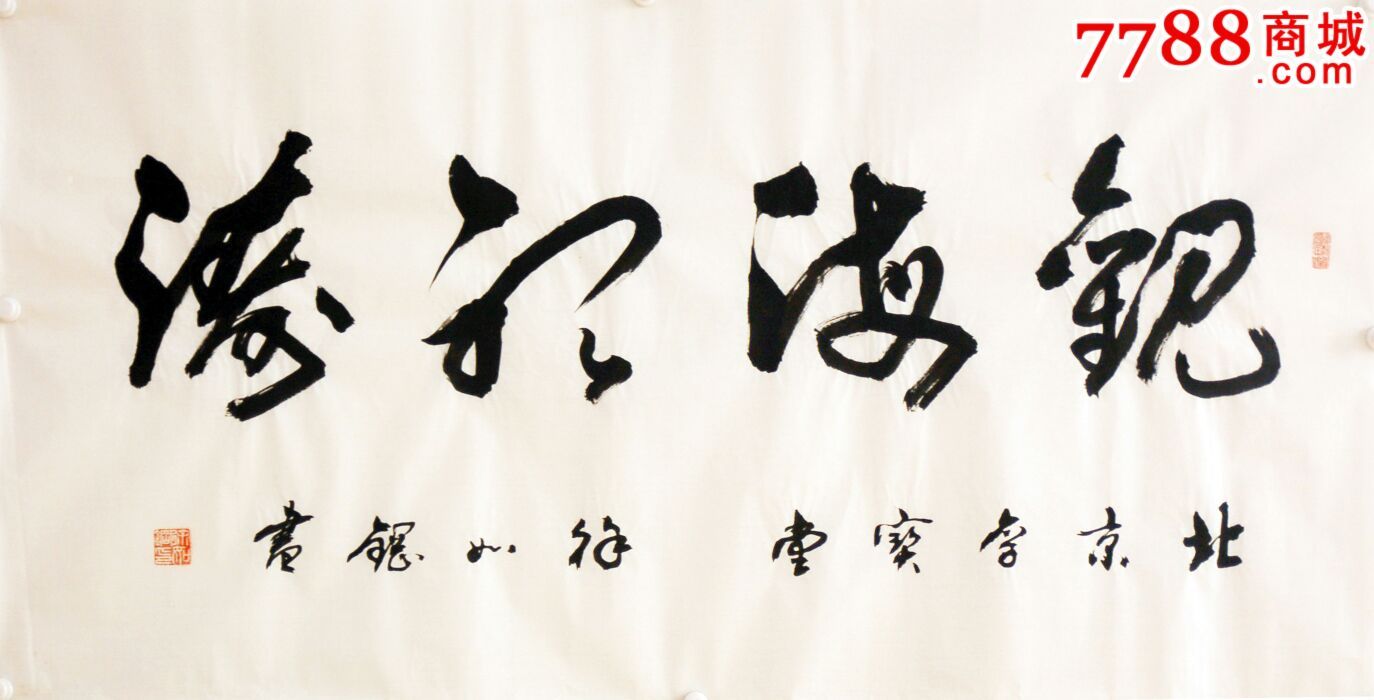 7788商城
.com
觀海聽濤
北京字寶堂 徐如鋼書